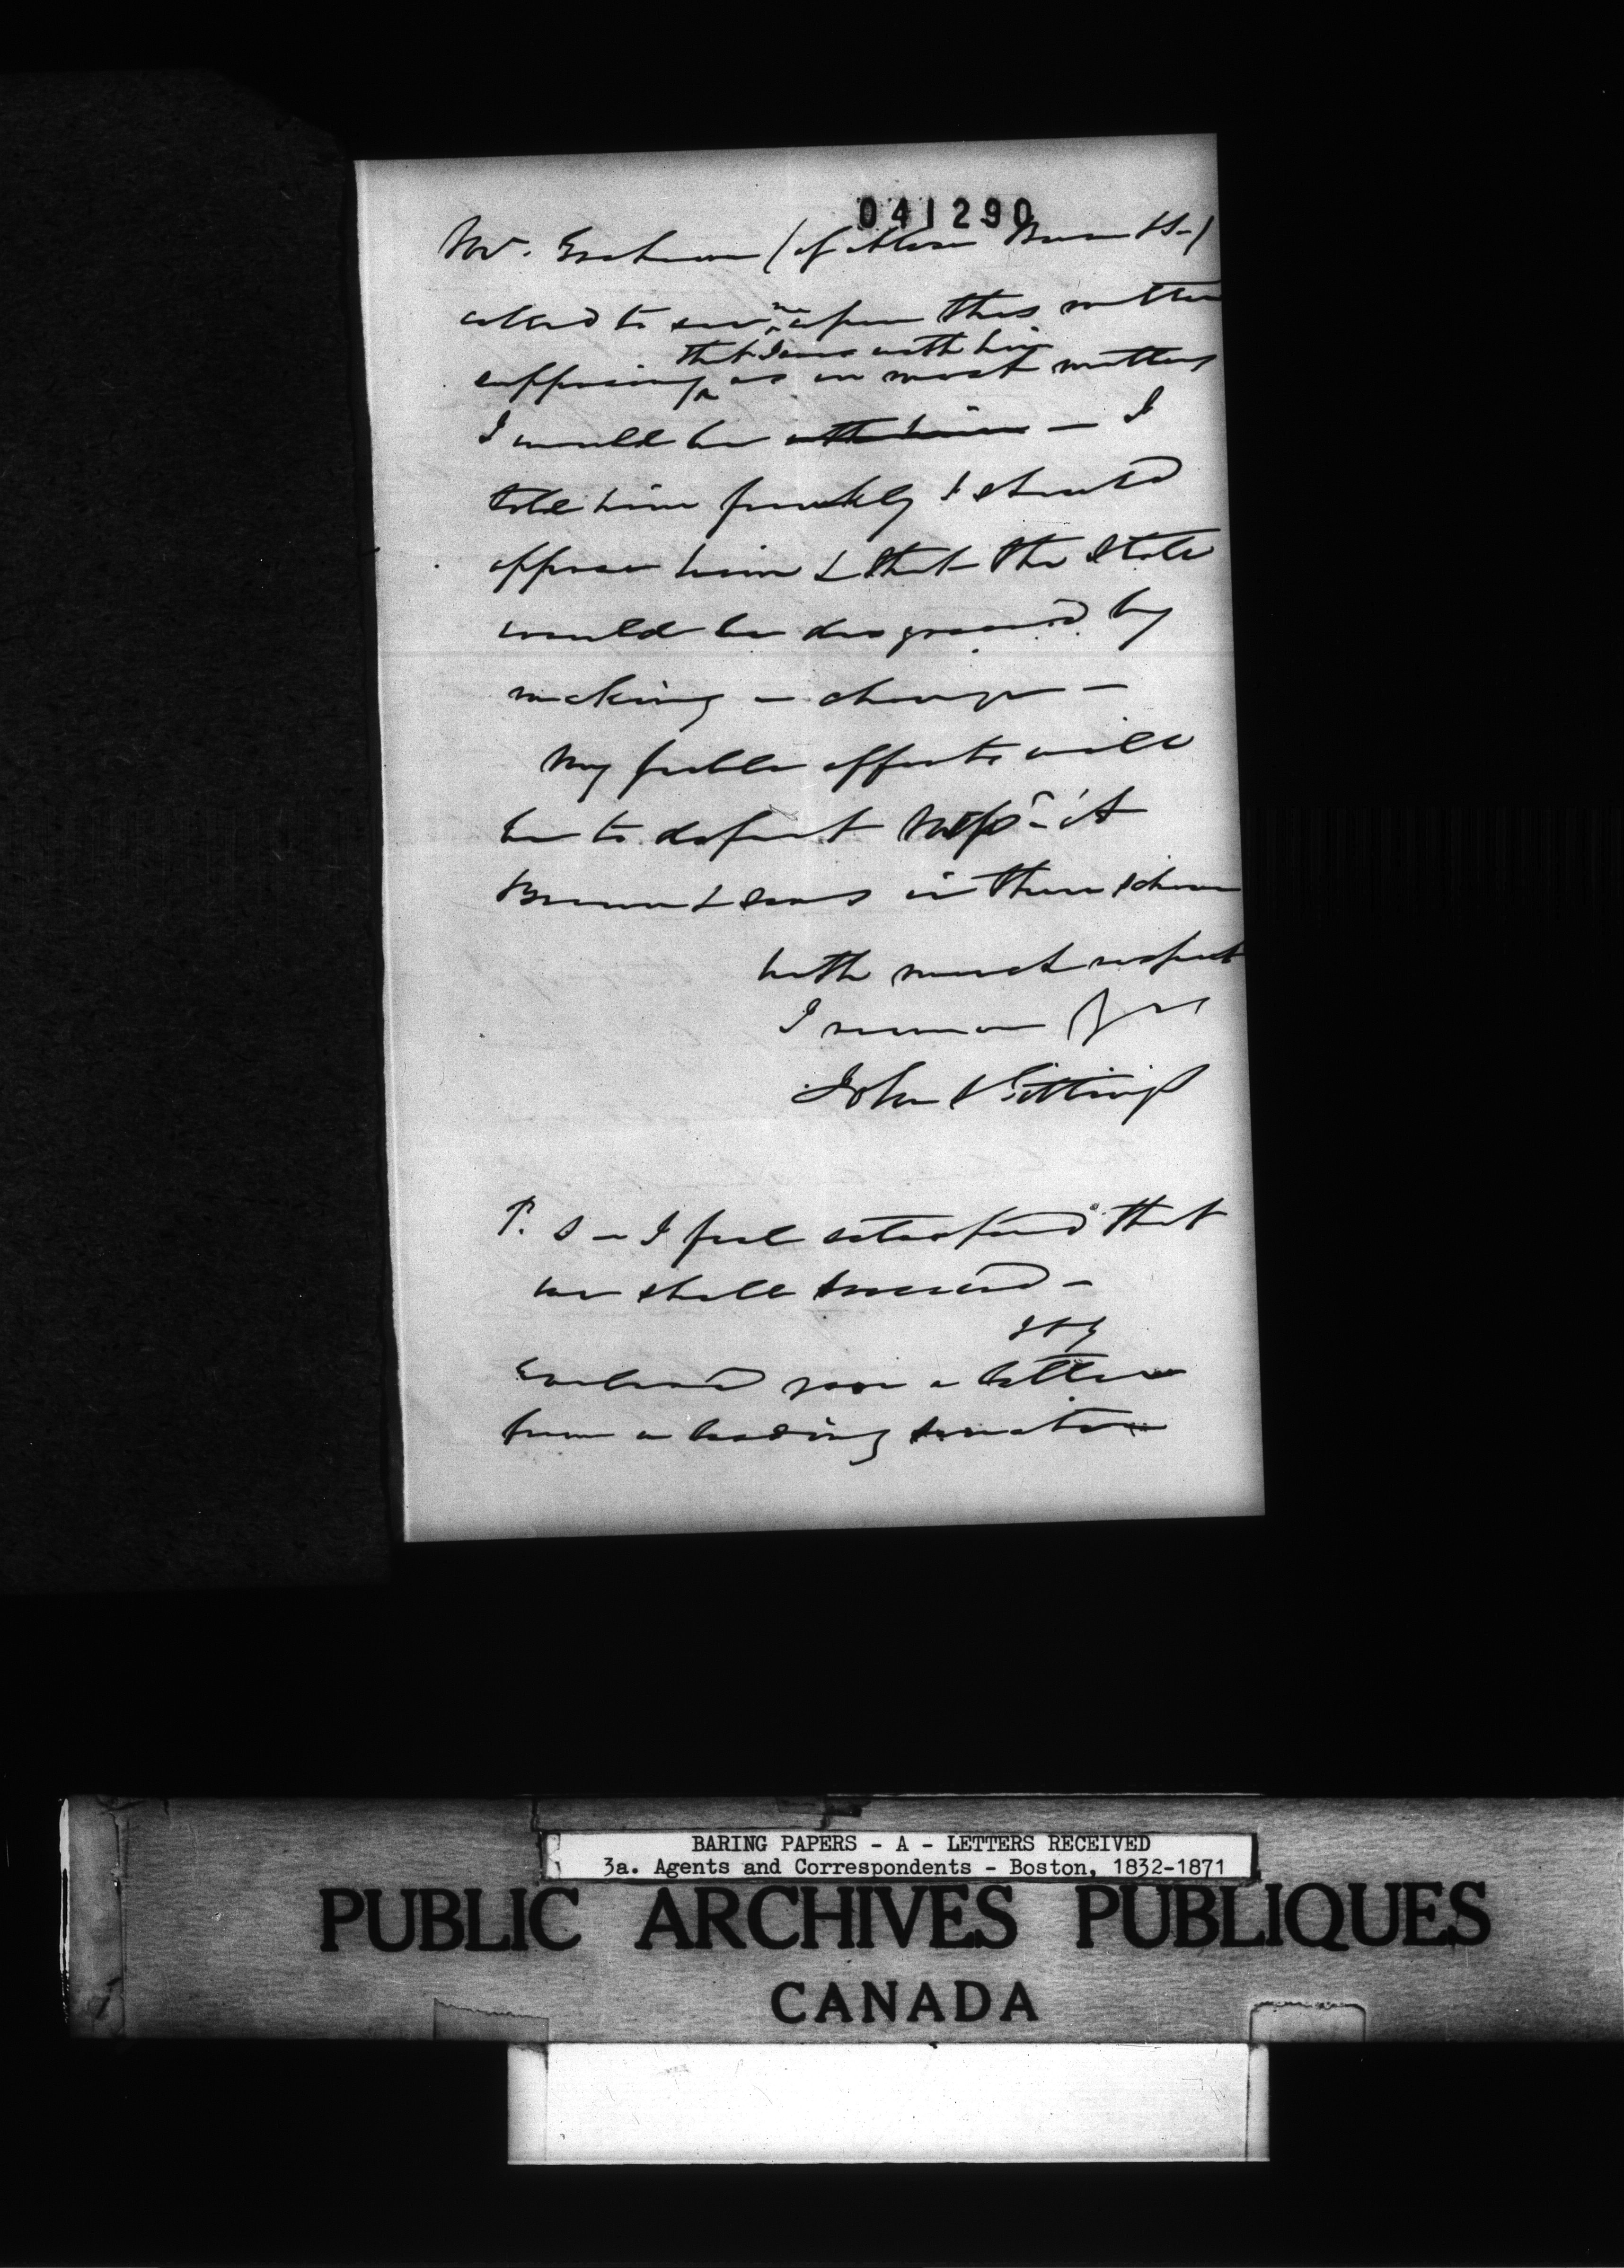 041290
Mr. Graham (of Alexr Brown & So-)
called to see me upon this matter
that I was with him
supposing as in most matters
I would be with him — I
told him frankly I should
oppose him & that the State
would be disgraced by
making a change —
My feeble efforts will
be to defeat Messrs A
Brown & Sons in their scheme
With much respect
I remain Yrs
John S Gittings
P. S — I feel satisfied that
we shall succeed —
JSG
Enclosed you a letter
from a leading senator
BARING PAPERS - A - LETTERS RECEIVED
3a. Agents and Correspondents - Boston, 1832-1871
PUBLIC ARCHIVES PUBLIQUES
CANADA